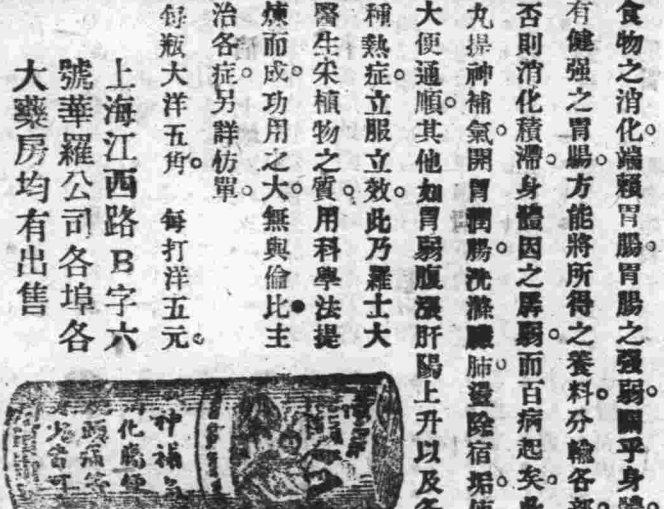 食物之消化。端賴胃腸。胃腸之强弱。關乎身體。
有健强之胃腸。方能將所得之養料。分輸各部。
否則消化積滯。身體因之孱弱。而百病起矣。此
丸提神補氣。開胃潤腸。洗滌臟肺。盪除宿垢。使
大便通順。其他如胃弱腹漲。肝陽上升。以及各
種熱症。立服立效。此乃羅士大
醫生采植物之質。用科學法提
煉而成。功用之大。無與倫比。主
治各症。另詳仿單。
每瓶大洋五角。每打洋五元。
上海江西路B字六
號華羅公司各埠各
大藥房均有出售
神補氣
化腸便